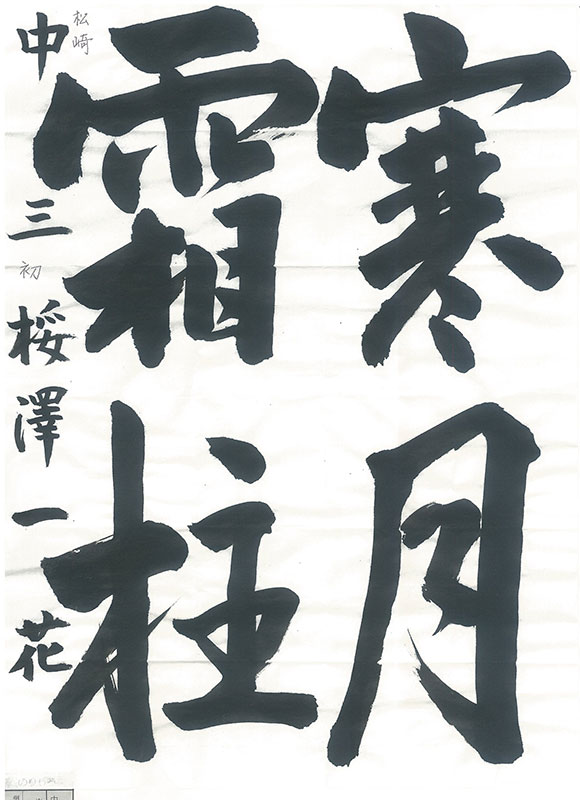 寒月
霜柱
中三 桜澤一花
松崎
初